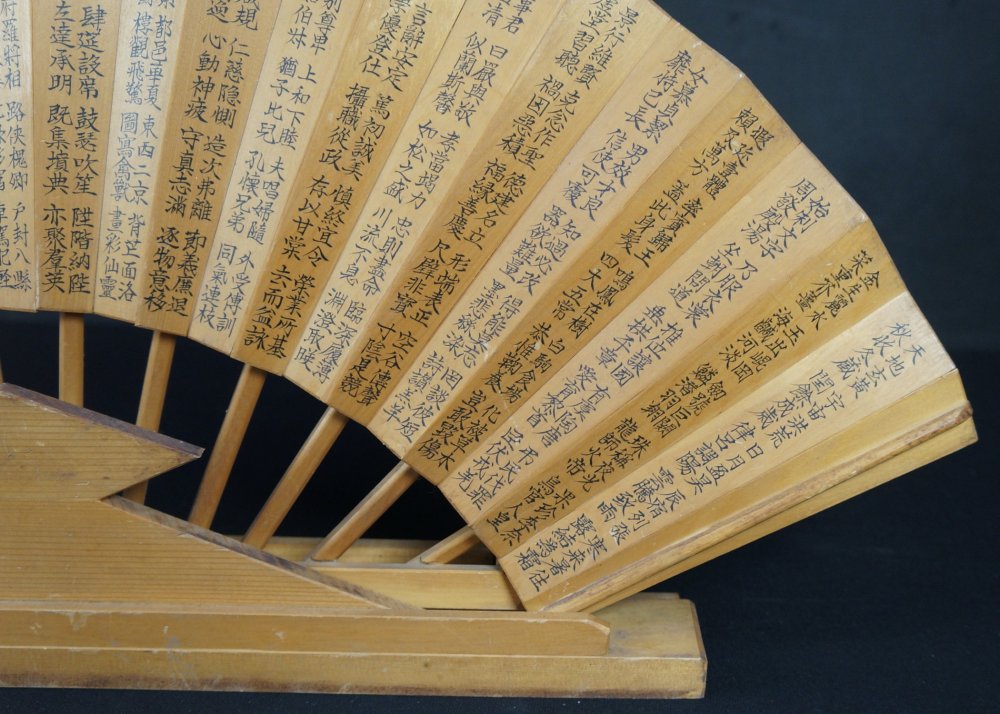 天地玄黃 宇宙洪荒 日月盈昃 辰宿列張 寒来暑往
秋收冬藏 閏餘成歲 律呂調陽 雲騰致雨 露結為霜
金生麗水 玉出崐岡 劍號巨闕 珠稱夜光 果珍李柰
菜重芥薑 海鹹河淡 鱗潛羽翔 龍師火帝 鳥官人皇
始制文字 乃服衣裳 推位讓國 有虞陶唐 弔民伐罪
周發殷湯 坐朝問道 垂拱平章 愛育黎首 臣伏戎羌
遐邇壹體 率賓歸王 鳴鳳在樹 白駒食場 化被草木
賴及萬方 蓋此身髮 四大五常 恭惟鞠養 豈敢毀傷
女慕貞絜 男效才良 知過必改 得能莫忘 罔談彼短
靡恃己長 信使可覆 器欲難量 墨悲絲染 詩讃羔羊
景行維賢 克念作聖 德建名立 形端表正 空谷傳聲
虛堂習聽 禍因惡積 福緣善慶 尺璧非寶 寸陰是競
事君 曰嚴與敬 孝當竭力 忠則盡命 臨深履薄
清 似蘭斯馨 如松之盛 川流不息 淵澄取暎
言辭安定 篤初誠美 慎終宜令 榮業所基
學優登仕 攝職從政 存以甘棠 去而益詠
別尊卑 上和下睦 夫唱婦隨 外受傅訓
伯叔 猶子比兒 孔懷兄弟 同氣連枝
箴規 仁慈隱惻 造次弗離 節義廉退
逸 心動神疲 守真志滿 逐物意移
都邑華夏 東西二京 背芒面洛
樓觀飛驚 圖寫禽獸 畫彩仙靈
肆筵設席 鼓瑟吹笙 陞階納陛
左達承明 既集墳典 亦聚羣英
府羅將相 路俠槐卿 户封八縣